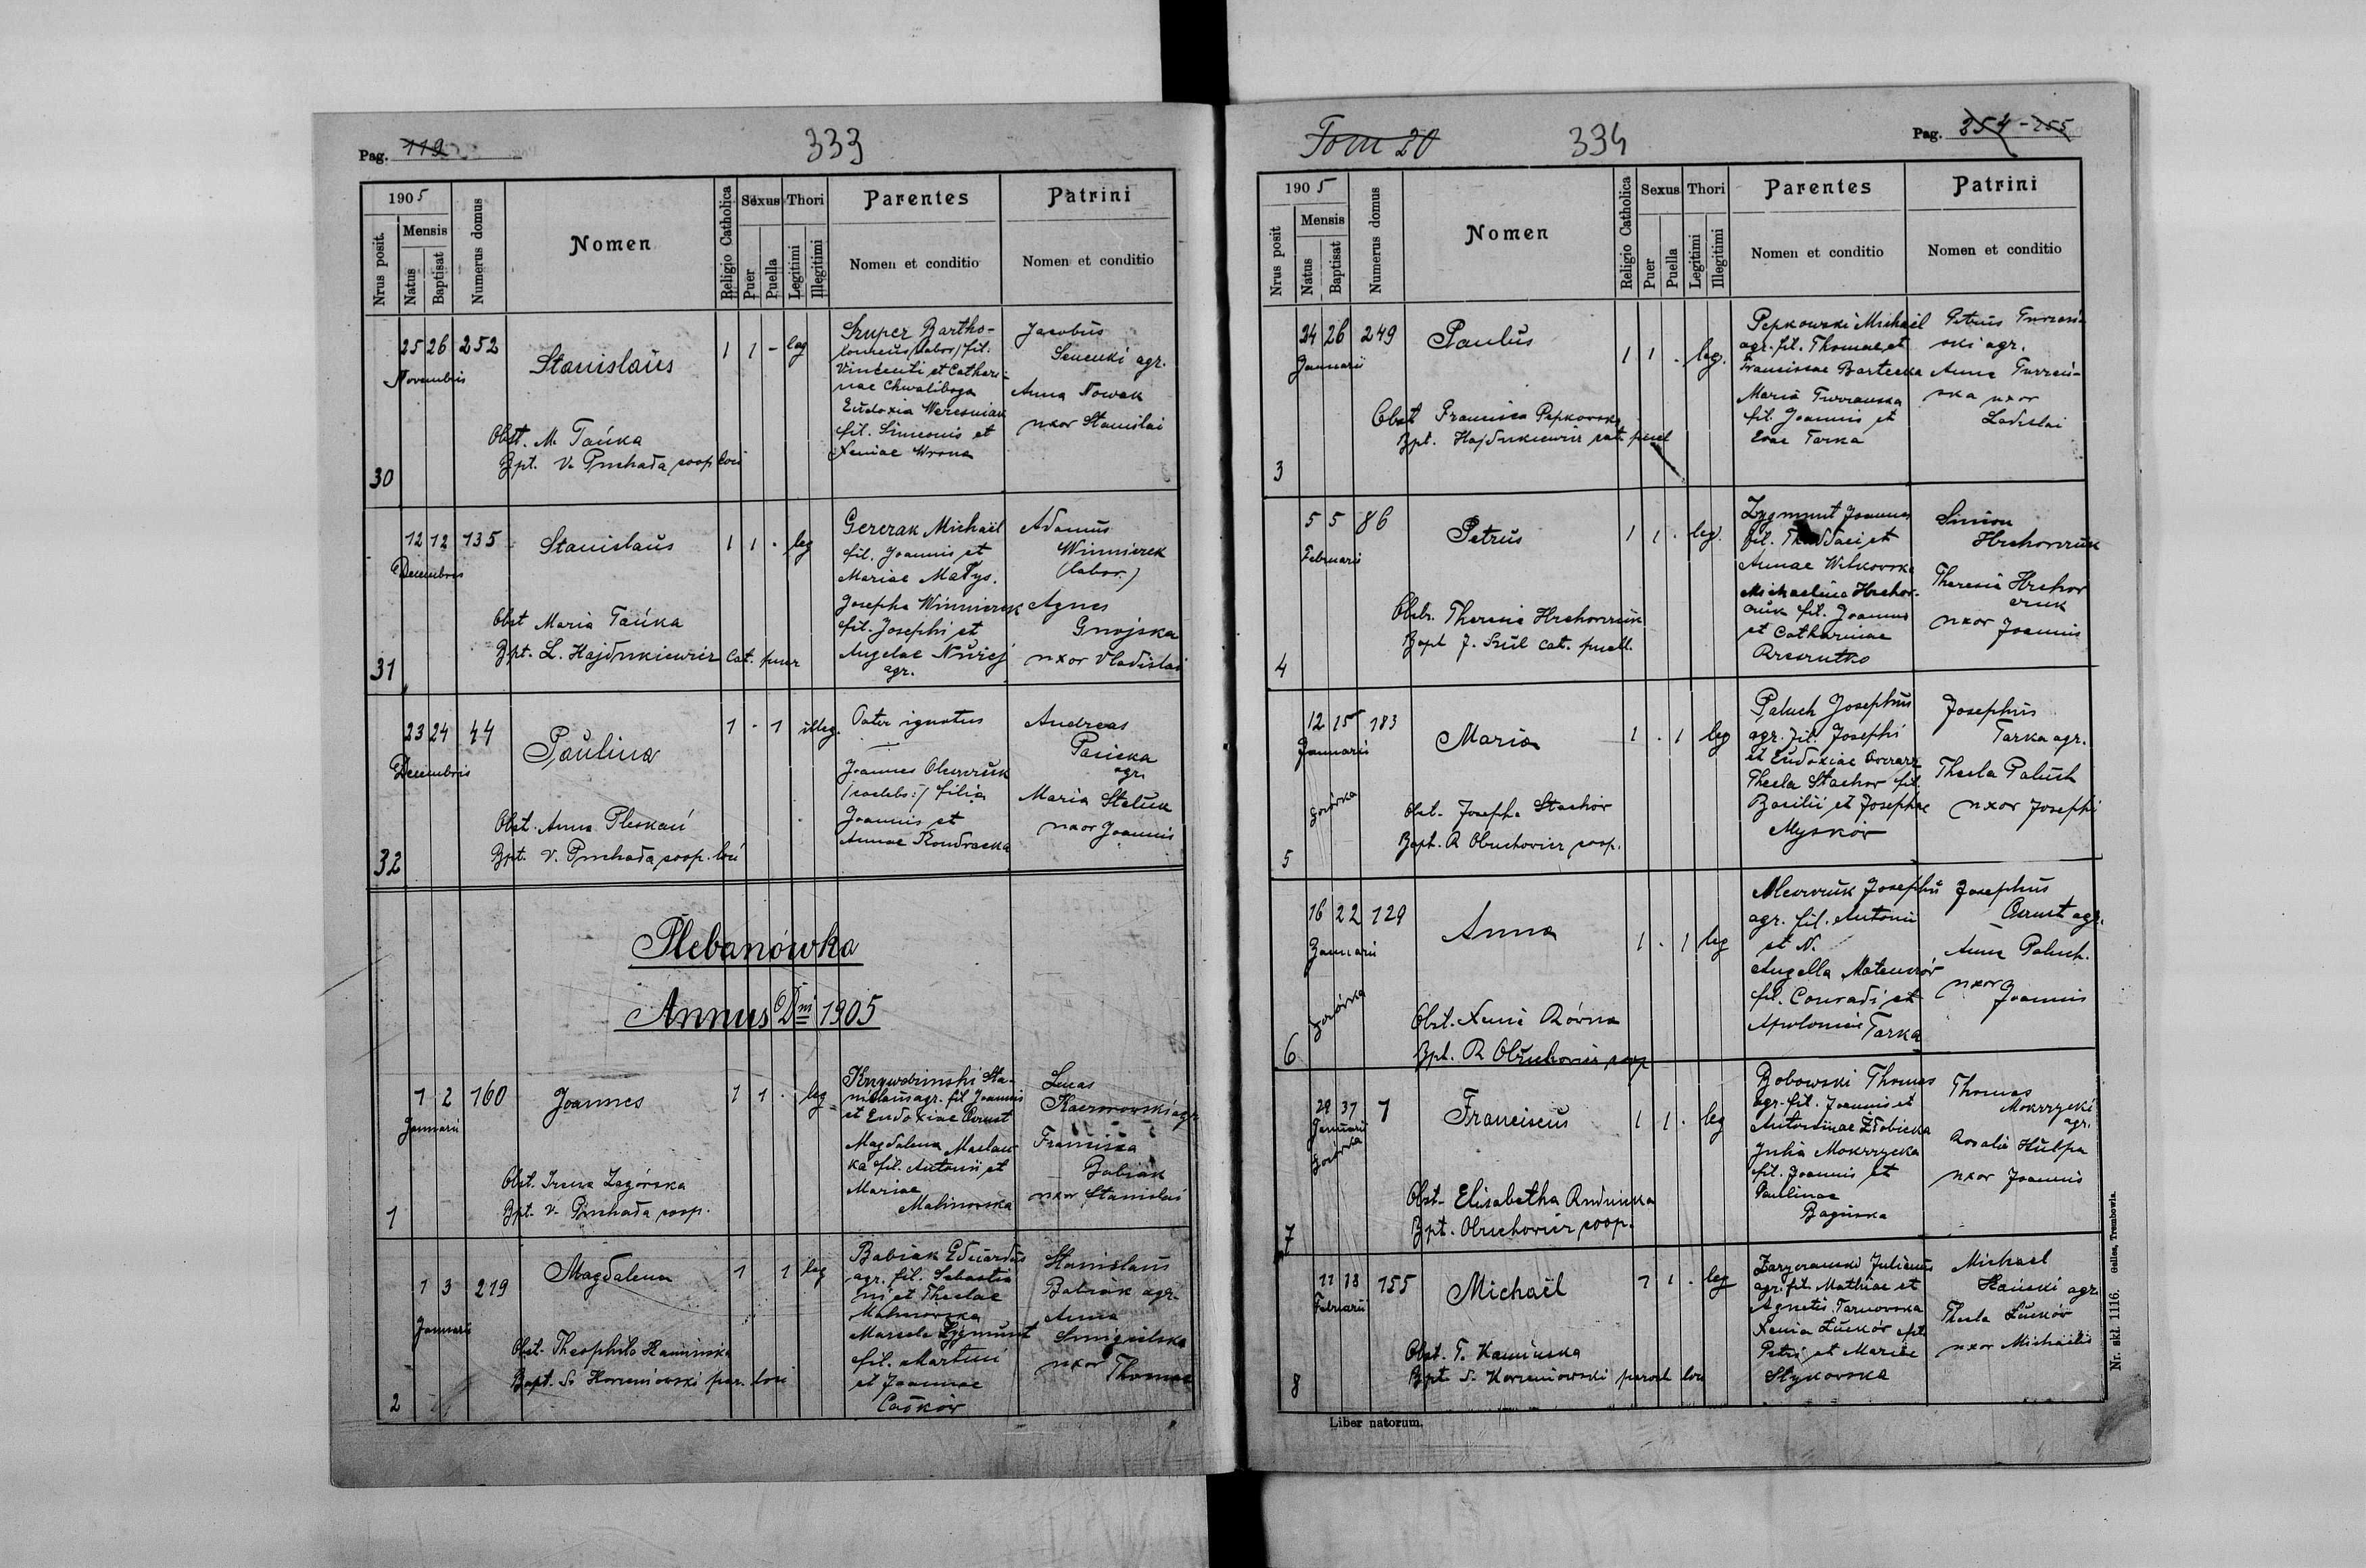 Pag. 119
333
1905
Nrus posit.
Mensis
Natus
Baptisat
Numerus domus
Nomen
Religio Catholica
Sexus
Puer
Puella
Thori
Legitimi
Illegitimi
Parentes
Nomen et conditio
Patrini
Nomen et conditio
30
25 26 252
Novembris
Stanislaus
1 1 - leg
Obst. M. Tańka
Bpt. V. Pruchada coop. loci
Szuper Bartho-
lomeus /labor/ fil.
Vincenti et Cathari-
nae Chwaliboga
Eudoxia Weresniak
fil. Simeonis et
Xeniae Wrona
Jacobus
agr.
Anna Nowak
uxor Stanislai
31
12 12 135
Decembris
Stanislaus
1 1 . leg
Obst Maria Tańka
Bpt. L. Hajdukiewicz Cat. puer
Gerczak Michaël
fil. Joannis et
Mariae Matys.
Josepha Winniczek
fil. Josephi et
Angelae
agr.
Adamus
Winniczek
(labor.)
Agnes
Gnojska
uxor Vladislai
32
23 24 44
Decembris
Paulina
1 - 1 illeg.
Obst. Anna Pleskań
Bpt. V. Pruchada coop. loci
Pater ignotus
Joannes
/:coelebs:/ filia
Joannis et
Annae Kondracka
Andreas
Pasieka
agr.
Maria Steluk
uxor Joannis
Plebanówka
Annus Dni 1905
1
1 2 160
Januarii
Joannes
1 1 . leg
Obst. Irena Zagórska
Bpt. V. Pruchada coop.
Krzywdzinski Sta-
nislaus agr. fil. Joannis
et Eudoxiae Czrust
Magdalena Maclau-
ka fil. Antonii et
Mariae
Malinowska
Lucas
Kaczorowski agr.
Franciska
Babiak
uxor Stanislai
2
1 3 219
Januarii
Magdalena
1 1 leg
Obst. Theophila Kaminska
Bapt. S. Korzeniowski par. loci
Babiak Eduardus
agr. fil. Sebastia
ni et Theclae
Malinowska
Marcela Zygmunt
fil. Martini
et Joannae
Caśków
Stanislaus
Babiak agr.
Anna
Smigielska
uxor
Thomae
Tom 20
334
Pag. 254-255
1905
Nrus posit
Mensis
Natus
Baptisat
Numerus domus
Nomen
Religio Catholica
Sexus
Puer
Puella
Thori
Legitimi
Illegitimi
Parentes
Nomen et conditio
Patrini
Nomen et conditio
3
24 26 249
Januarii
Paulus
1 1 . leg.
Obst Francisca Pepkowska
Bpt. Hajdukiewicz cat. puel
Pepkowski Michaël
agr. fil. Thomae et
Franciscae Bartecka
Maria Turzanska
fil. Joannis et
Evae Tarka
Petrus Turzań-
ski agr.
Anna Turzań-
ska uxor
Ladislai
4
5 5 86
Februarii
Petrus
1 1 . leg.
Obstr. Theresia Hrehorczuk
Bapt J. Szul cat. puell.
Zygmunt Joannes
fil. Thaddaei et
Annae Witkowska
Michaelina Hrehor-
czuk fil. Joannis
et Catharinae
Simon
Hrehorczuk
Theresia Hrehor
czuk
uxor Joannis
5
12 15 183
Januarii
Gorórka
Maria
1 . 1 leg
Obst. Josepha Stachór
Bapt. R Obuchovicz coop.
Paluch Josephus
agr. fil. Josephi
et Eudoxiae
Thecla Stachor fil.
Basilii et Josephae
Myskór
Josephus
Tarka agr.
Thecla Paluch
uxor Josephi
6
16 22 129
Januarii
Gorórka
Anna
1 . 1 leg
Obst. Xenia Równa
Bpt. R Obuchovicz coop
Josephus
agr. fil. Antonii
et N.
Angella
fil. Conradi et
Apoloniae Tarka
Josephus
Czrust agr.
Anna Paluch.
uxor
Joannis
7
29 31 7
Januarii
Gorórka
Franciscus
1 1 . leg
Obst. Elisabetha Rudnicka
Bpt. Obuchovicz coop.
Bobowski Thomas
agr. fil. Joannis et
Antoninae Żłobicka
Julia Mokrzycka
fil. Joannis et
Paulinae
Baginska
Thomas
Mokrzycki
agr.
Rosalia Hulpa
uxor Joannis
8
11 13 155
Februarii
Michaël
1 1 . leg
Obst. T. Kaminska
Bpt S. Korzeniowski paroch loci
Julianus
agr. fil. Mathiae et
Agnetis Tarnowska
Xenia Łuckór fil.
Petri et Mariae
Stykowska
Michael
Hański agr.
Thecla Łuckór
uxor Michaelis
Liber natorum.
Nr. skł. 1116. Gelles, Trembowla.